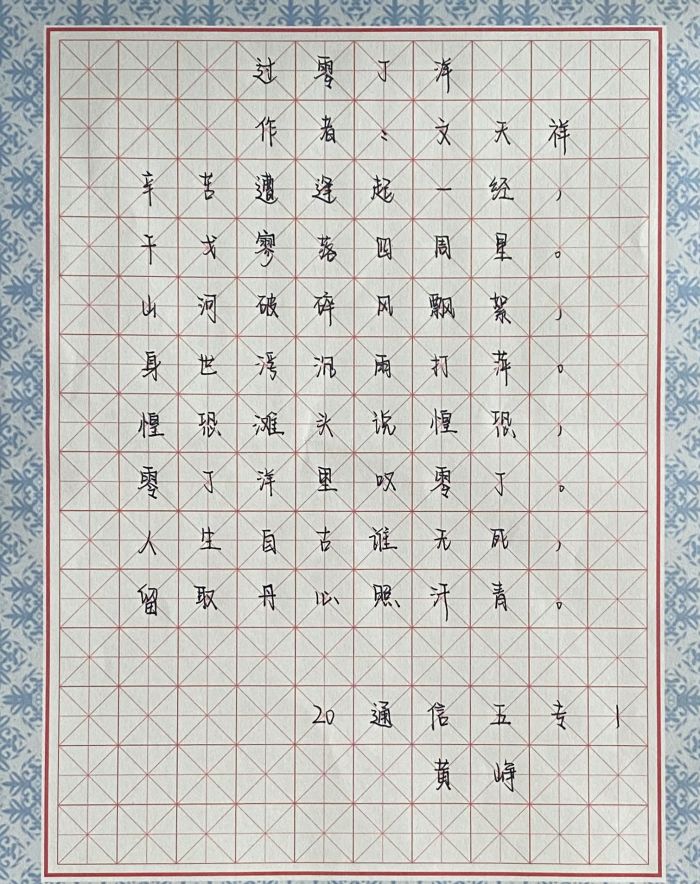 过零丁洋
作者：文天祥
辛苦遭逢起一经，
干戈寥落四周星。
山河破碎风飘絮，
身世浮沉雨打萍。
惶恐滩头说惶恐，
零丁洋里叹零丁。
人生自古谁无死，
留取丹心照汗青。
20通信五专1
黄峥